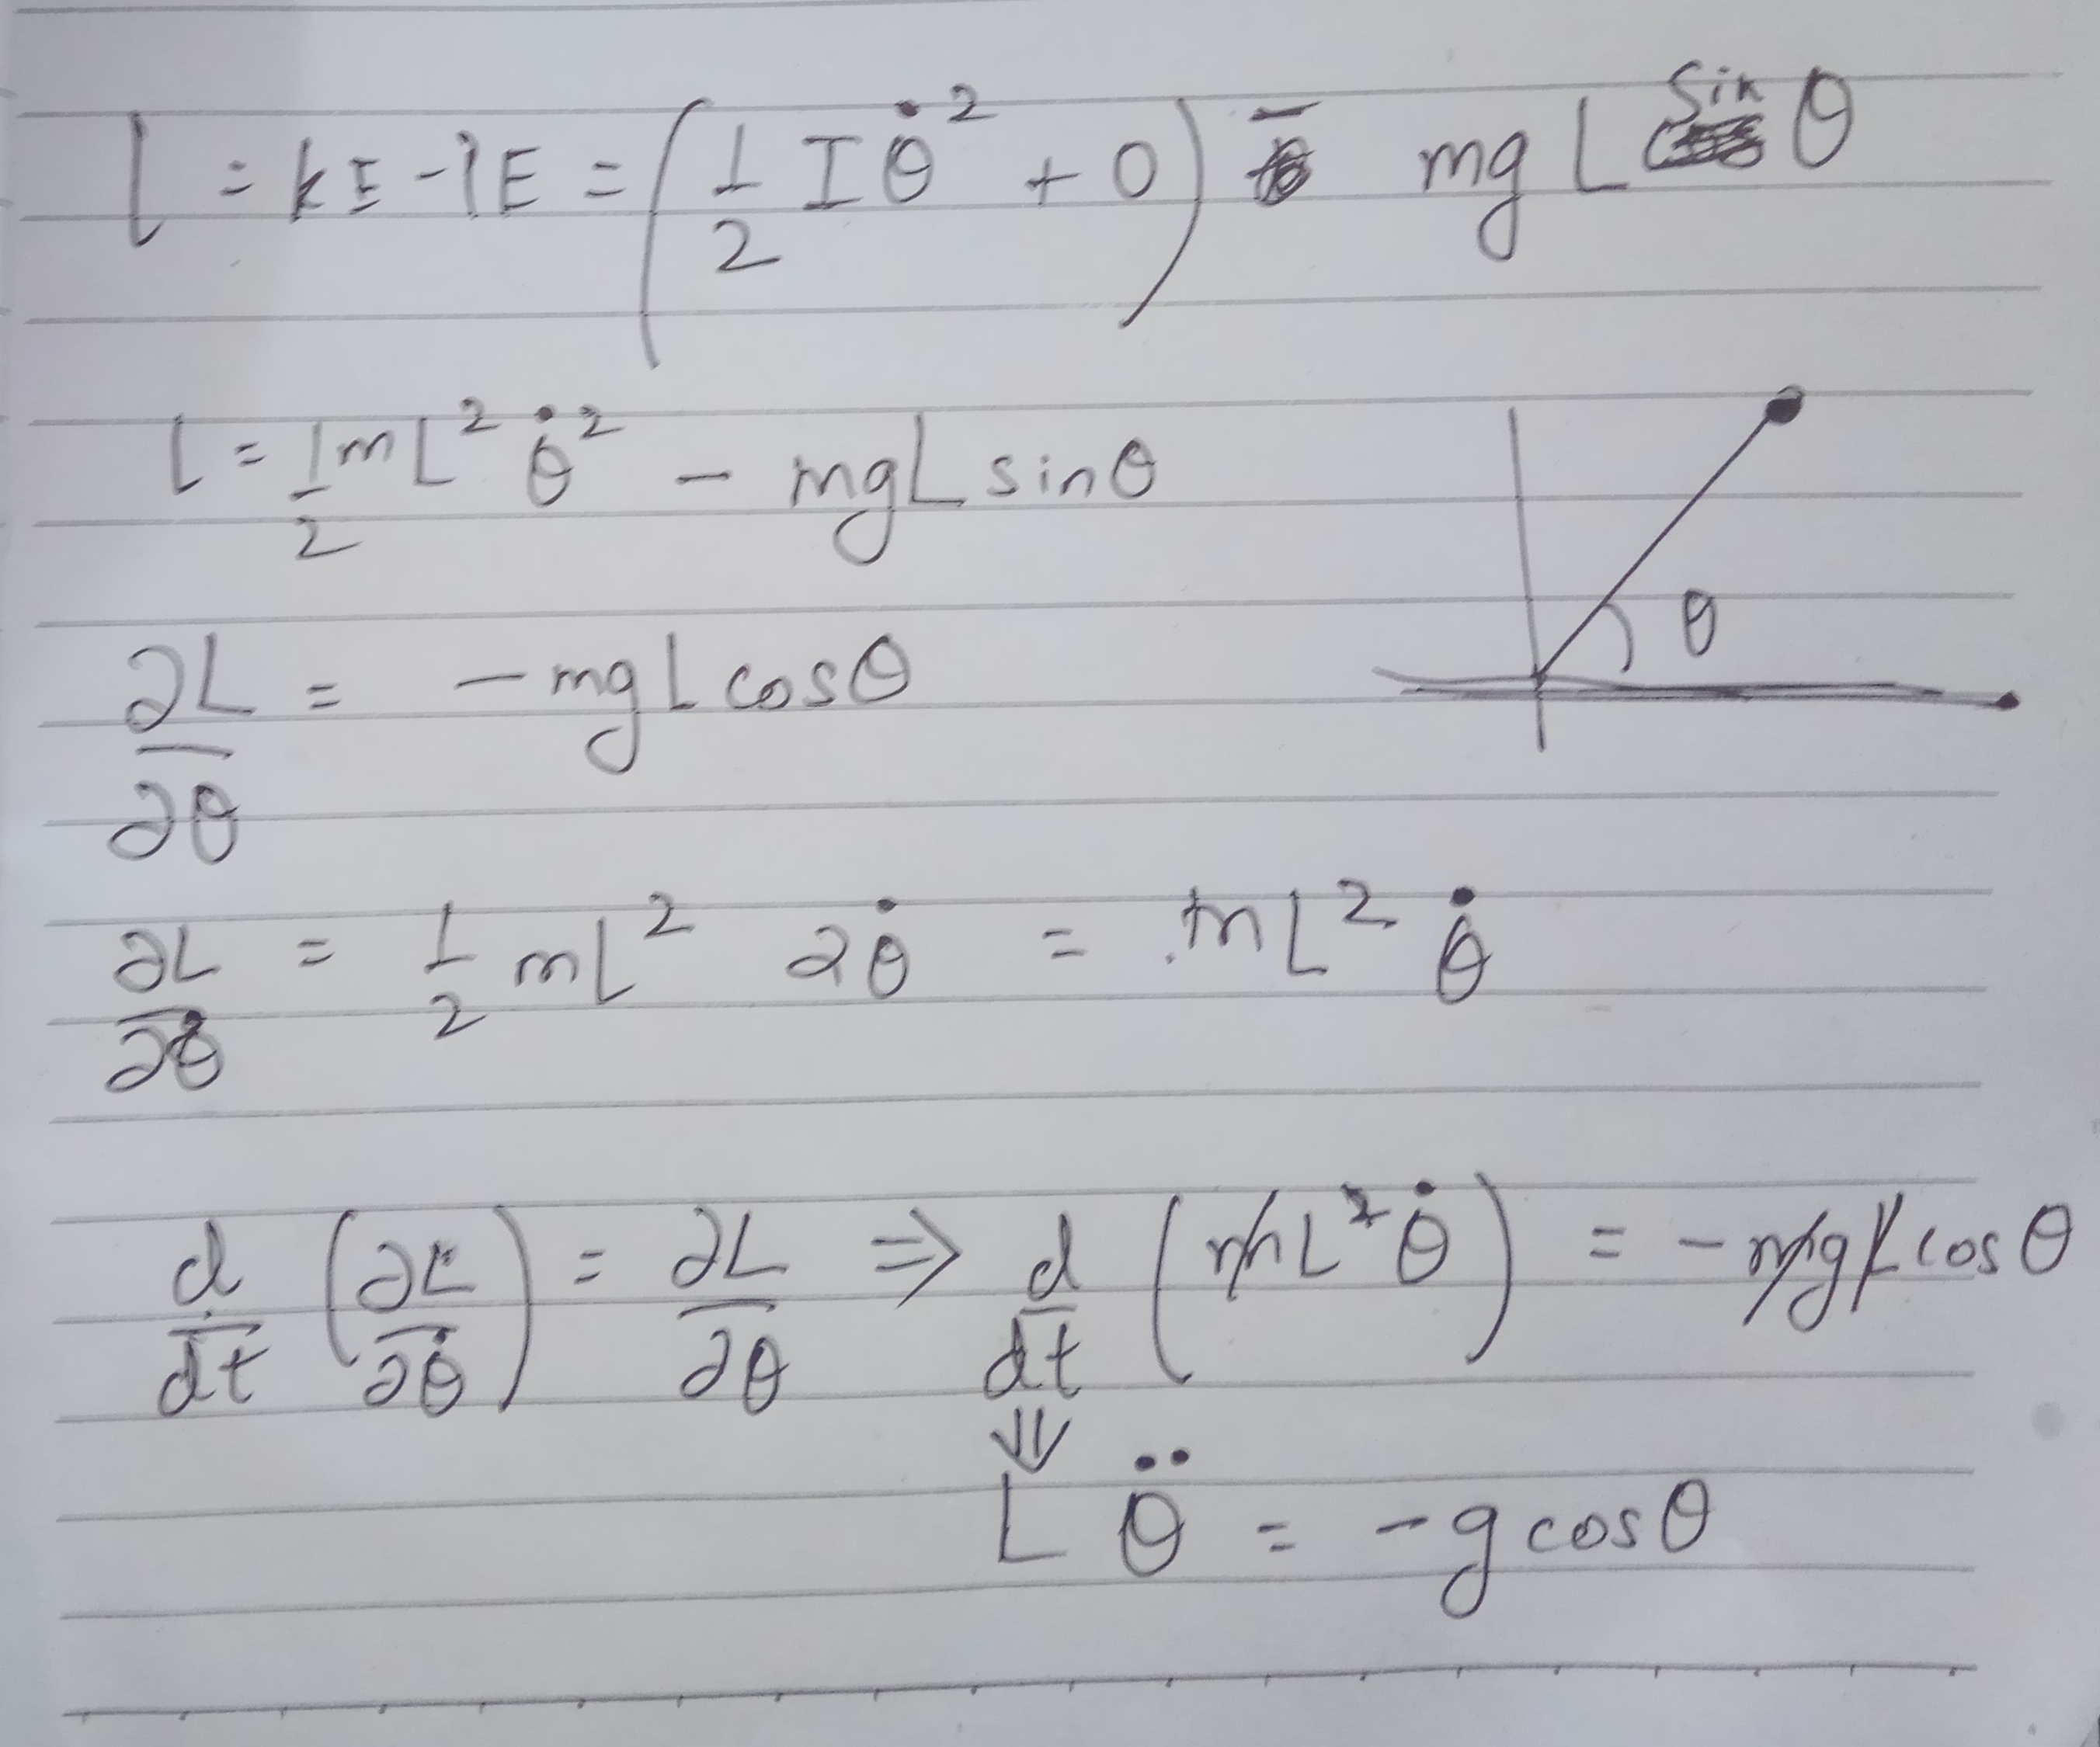 L = KE - PE = (1/2 I θ̇² + 0) - mg L sin θ
L = 1/2 m L² θ̇² - mgL sin θ
θ
∂L/∂θ = - mg L cos θ
∂L/∂θ̇ = 1/2 mL² 2θ̇ = mL² θ̇
d/dt (∂L/∂θ̇) = ∂L/∂θ ⇒ d/dt (mL² θ̇) = - mgL cos θ
⇓
L θ̈ = - g cos θ